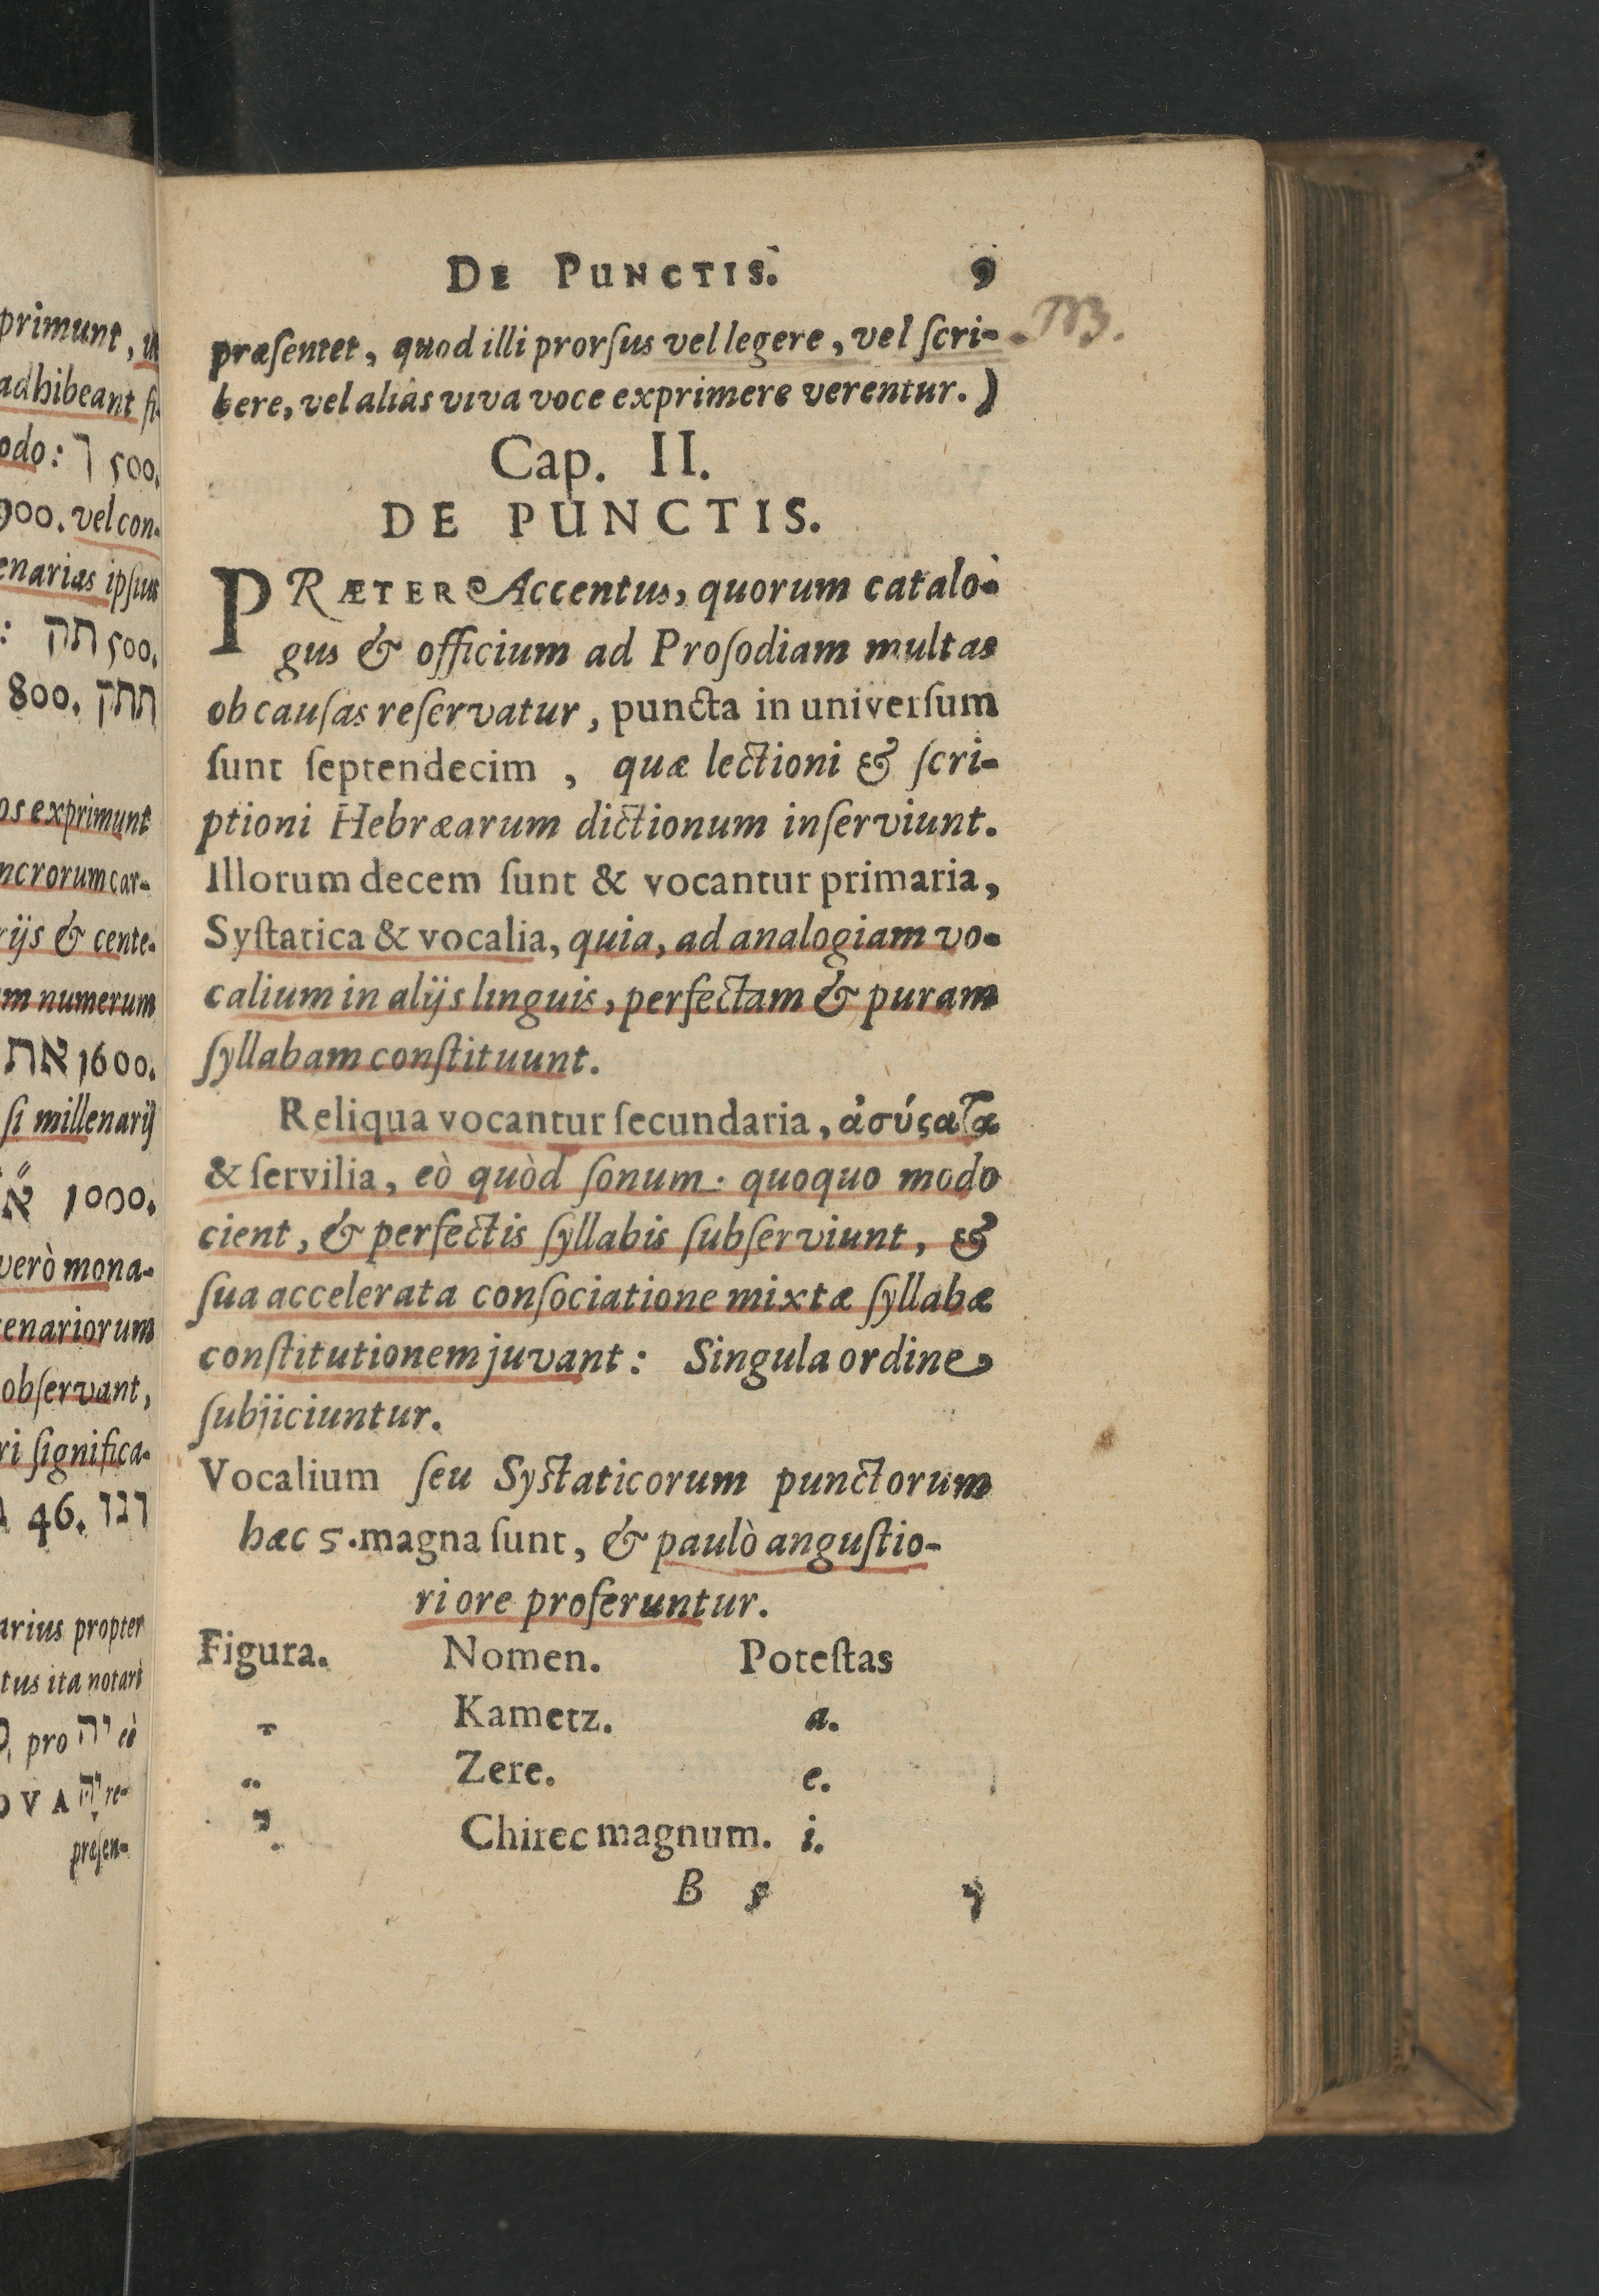 primunt, ut
adhibeant si-
odo: ך 500.
900. vel con-
enarias ipsius
: תק 500.
800. תתק
os exprimunt
ncrorum car-
rijs & cente-
m numerum
1600. את
si millenarij
1000. א̈
verò mona-
enariorum
observant,
ri significa-
46. וגו
arius propter
tus ita notari
pro יה eò
OVA יה re-
præsen-
DE PUNCTIS. 9
præſentet, quod illi prorſus vel legere, vel ſcri-
NB.
bere, vel aliâs viva voce exprimere verentur.)
Cap. II.
DE PUNCTIS.
PRÆTER Accentus, quorum catalo-
gus & officium ad Proſodiam multas
ob cauſas reſervatur, puncta in univerſum
ſunt ſeptendecim, quæ lectioni & ſcri-
ptioni Hebræarum dictionum inſerviunt.
Illorum decem ſunt & vocantur primaria,
Syſtatica & vocalia, quia, ad analogiam vo-
calium in alijs linguis, perfectam & puram
ſyllabam conſtituunt.
Reliqua vocantur ſecundaria, ἀσύϛατα
& ſervilia, eò quòd ſonum quoquo modo
cient, & perfectis ſyllabis ſubſerviunt, &
ſua accelerata conſociatione mixtæ ſyllabæ
conſtitutionem juvant: Singula ordine
ſubjiciuntur.
Vocalium ſeu Syſtaticorum punctorum
hæc 5. magna ſunt, & paulò anguſtio-
ri ore proferuntur.
Figura. Nomen. Poteſtas
ָ Kametz. a.
ֵ Zere. e.
ִי Chirec magnum. i.
B 5 י